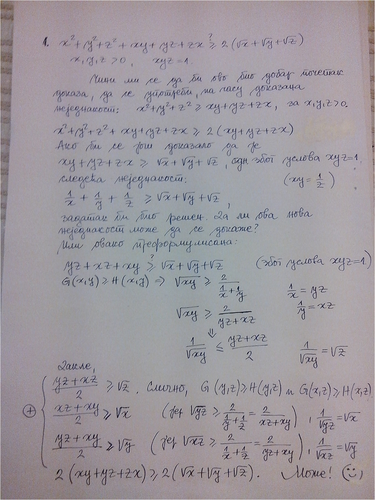 1. x²+y²+z²+xy+yz+zx ≥? 2(√x+√y+√z)
x,y,z>0, xyz=1.
Чини ми се да би ово био добар почетак
доказа, да се употреби, на часу доказана
неједнакост: x²+y²+z² ≥ xy+yz+zx, за x,y,z>0.
x²+y²+z²+xy+yz+zx ≥ 2(xy+yz+zx)
Ако би се још доказало да је
xy+yz+zx ≥ √x+√y+√z, одн. због услова xyz=1,
следећа неједнакост: (xy=1/z)
1/x + 1/y + 1/z ≥ √x+√y+√z,
задатак би био решен. Да ли ова нова
неједнакост може да се докаже?
Или овако преформулисана:
yz+xz+xy ≥? √x+√y+√z (због услова xyz=1)
G(x,y) ≥ H(x,y) ⇒ √xy ≥ 2/(1/x+1/y) 1/x = yz
√xy ≥ 2/(yz+xz) 1/y = xz
⇓
1/√xy ≤ (yz+xz)/2 1/√xy = √z
Дакле,
(yz+xz)/2 ≥ √z. Слично, G(y,z) ≥ H(y,z) и G(x,z) ≥ H(x,z)
⊕ (xz+xy)/2 ≥ √x (јер √yz ≥ 2/(1/y+1/z) = 2/(xz+xy)), 1/√yz = √x
(yz+xy)/2 ≥ √y (јер √xz ≥ 2/(1/x+1/z) = 2/(yz+xy)), 1/√xz = √y
2(xy+yz+zx) ≥ 2(√x+√y+√z). Може! ☺